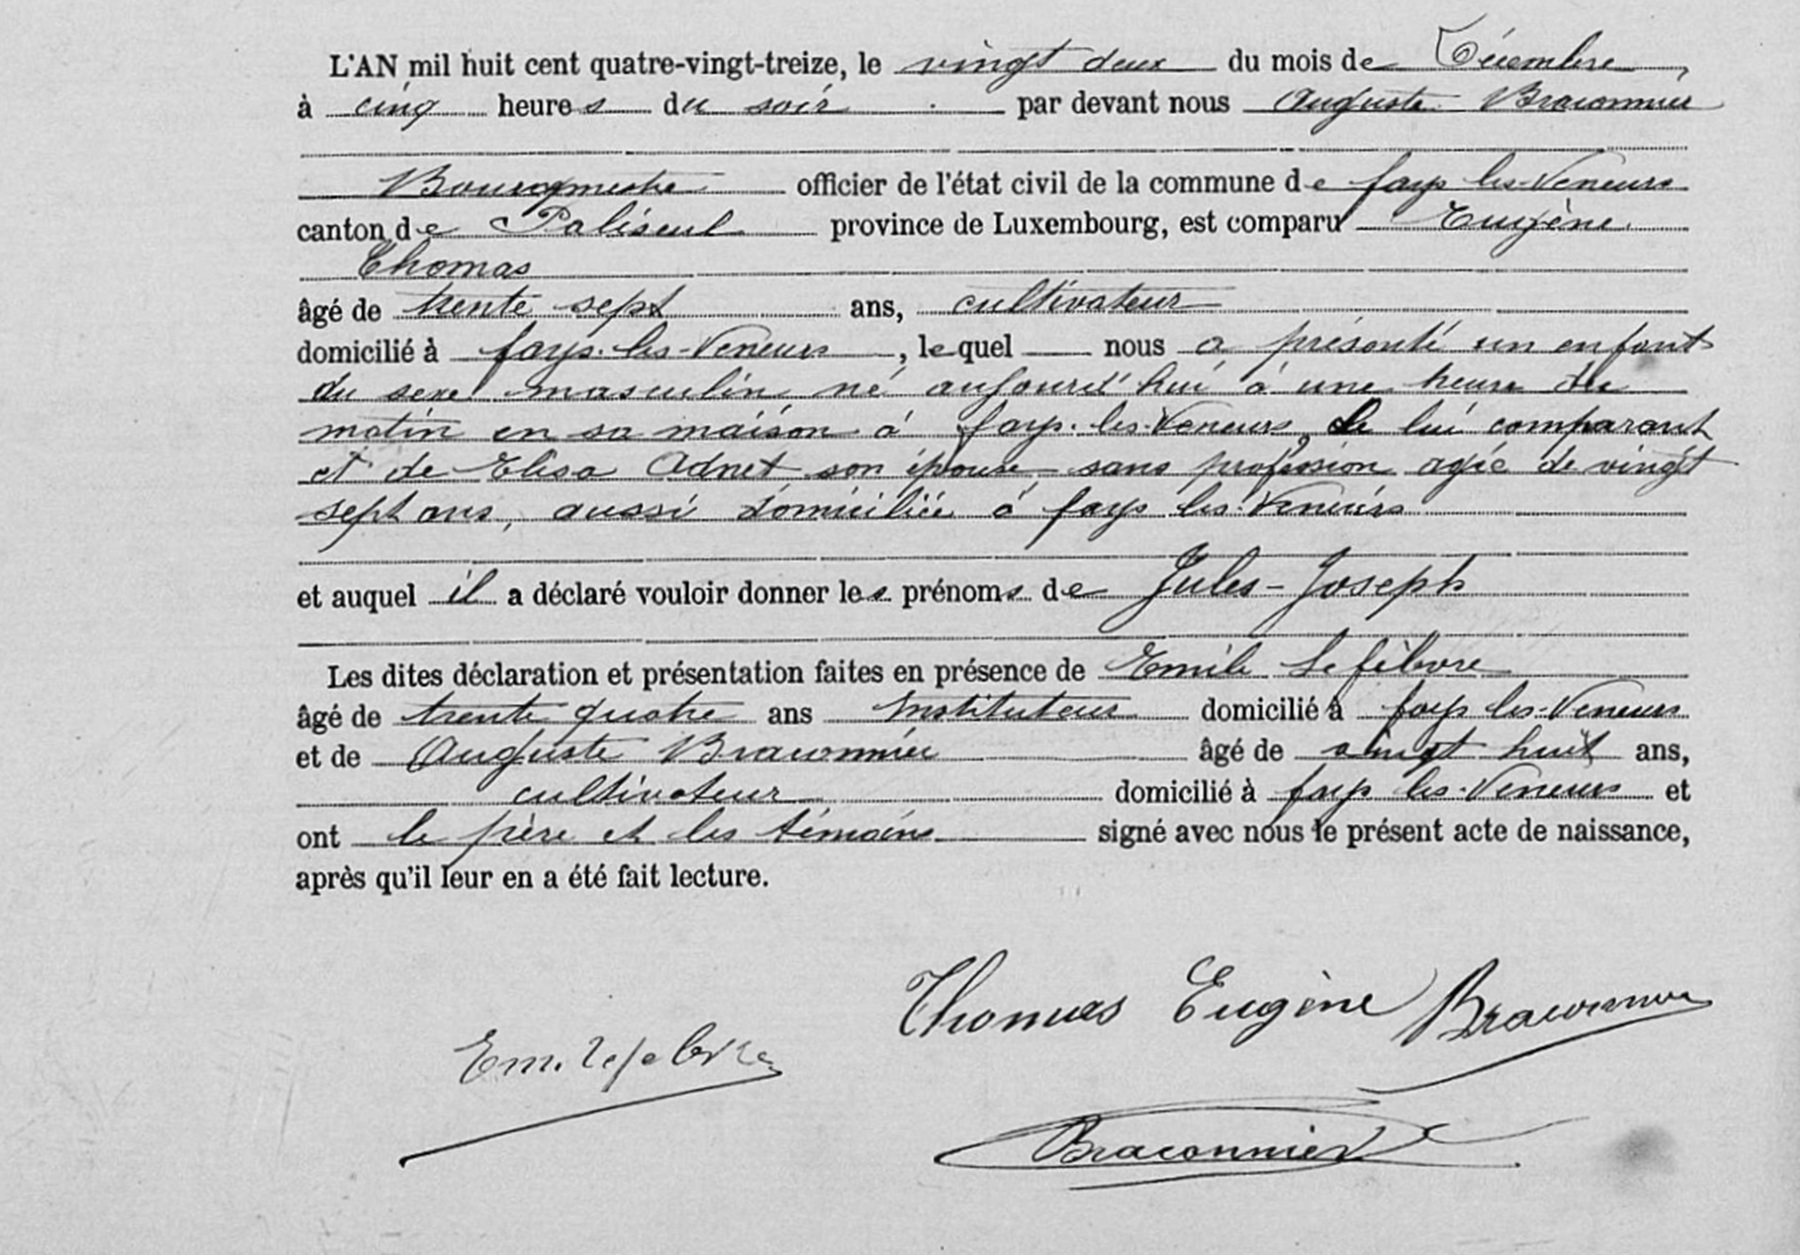 L'AN mil huit cent quatre-vingt-treize, le vingt deux du mois de Décembre,
à cinq heures du soir par devant nous Auguste Braconnier
Bourgmestre officier de l'état civil de la commune de fays les-Veneurs
canton de Paliseul province de Luxembourg, est comparu Eugène
Thomas
âgé de trente sept ans, cultivateur
domicilié à fays-les-Veneurs, lequel nous a présenté un enfant
du sexe masculin né aujourd'hui à une heure du
matin en sa maison à fays-les-Veneurs, de lui comparant
et de Elisa Adnet son épouse sans profession agée de vingt
sept ans, aussi domiciliée à fays les-Veneurs
et auquel il a déclaré vouloir donner les prénoms de Jules-Joseph
Les dites déclaration et présentation faites en présence de Emile Lefèbvre
âgé de trente quatre ans Instituteur domicilié à fays les-Veneurs
et de Auguste Braconnier âgé de vingt huit ans,
cultivateur domicilié à fays les-Veneurs et
ont le père et les témoins signé avec nous le présent acte de naissance,
après qu'il leur en a été fait lecture.
Thomas Eugène Braconnier
Em. Lefebvre
Braconnier